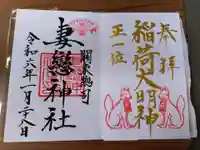 奉拝
稲荷大明神
正一位
関東惣司
妻戀神社
令和六年一月二十八日